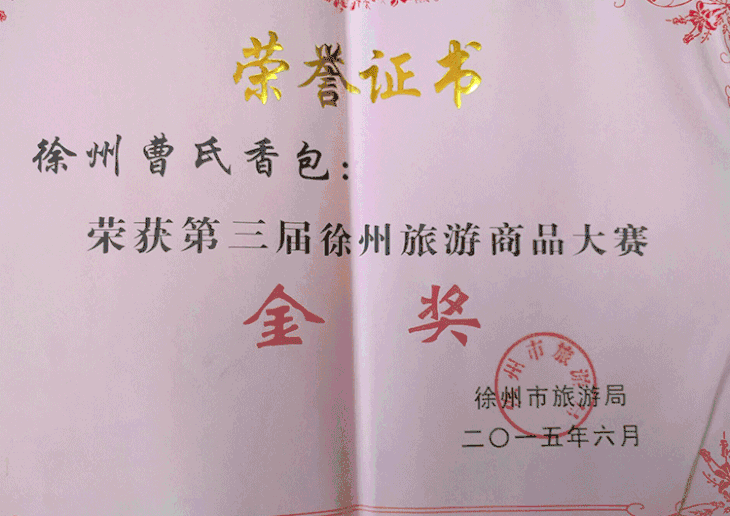 荣誉证书
徐州曹氏香包:
荣获第三届徐州旅游商品大赛
金奖
徐州市旅游局
二〇一五年六月